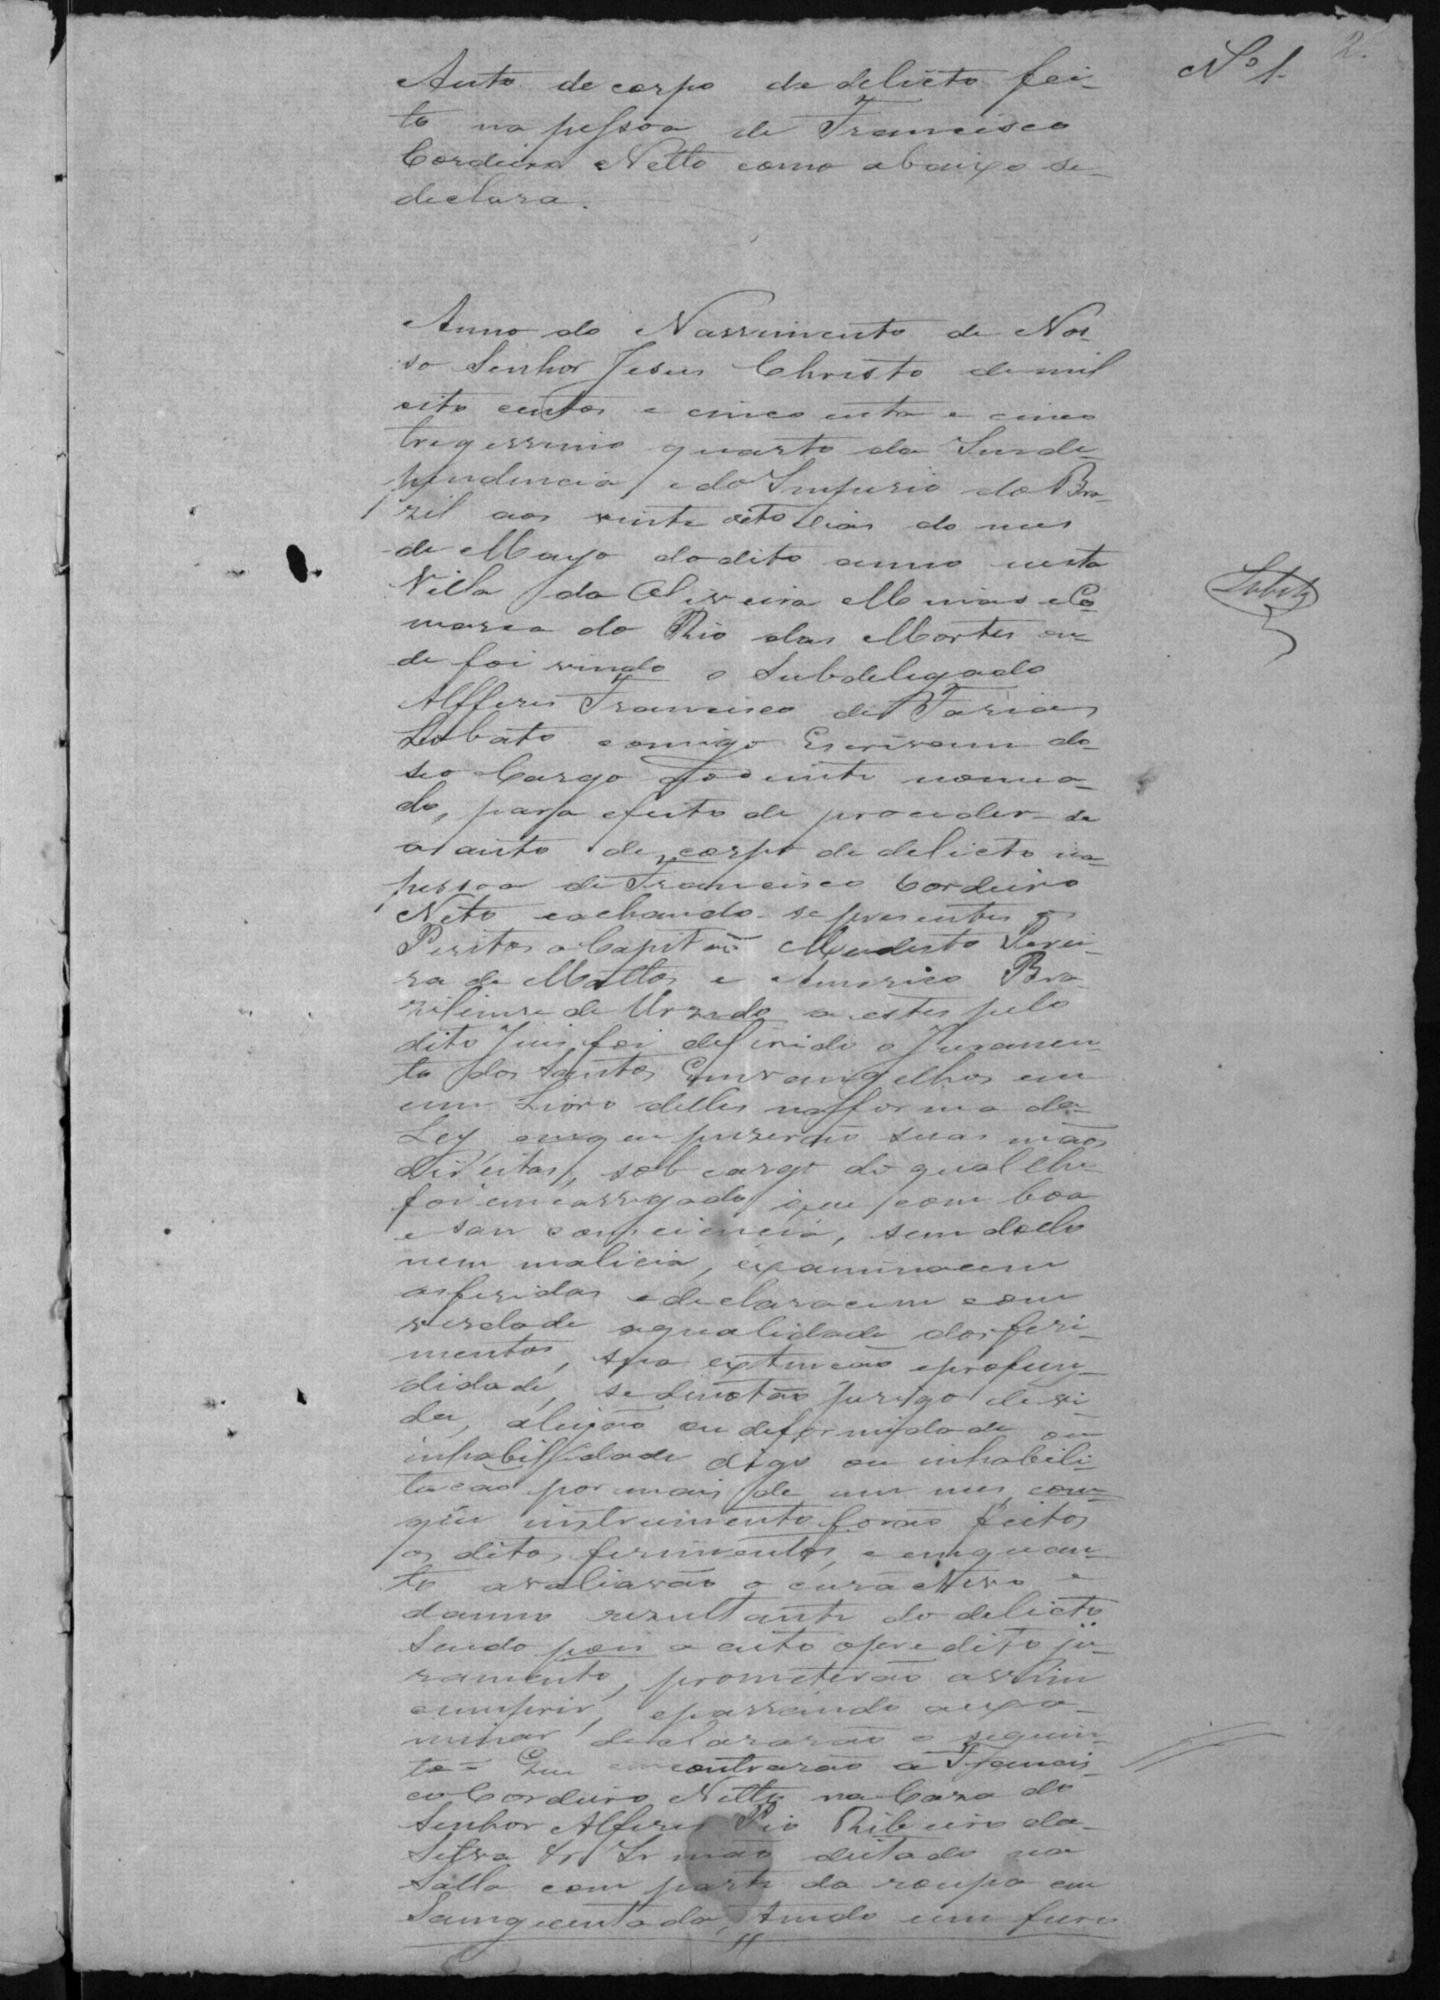 2.
Nº 1.
Auto de corpo de delicto fei-
to na pessoa de Francisco
Cordeiro Netto como abaixo se-
declara.
Anno do Nascimento de Nos-
so Senhor Jesus Christo de mil
oito centos e cincoenta e cinco
tregessimo quarto da Inde-
pendencia e do Imperio do Bra-
zil aos vinte oito dias do mes
de Mayo do dito anno nesta
Villa da Oliveira Minas e Co-
marca do Rio das Mortes on-
de foi vindo o Subdelegado
Alfferes Francisco de Faria
Lobato comigo Escrivam do
seo Cargo nomea-
do, para efeito de proceder-se
a auto de corpo de delicto na
pessoa de Francisco Cordeiro
Neto e achando-se presentes os
Peritos o Capitão Modesto Perei-
ra de Mattos e Americo Bra-
ziliense de Urzedo a estes pelo
dito Juis foi defirido o Juramen-
to dos Santos Envangelhos em
um Livro delles na fforma da
Ley em que puzerão suas mãos
direitas, sob cargo do qual lhe
foi encarregado que com boa
e san conciencia, sem dollo
nem malicia, examinacem
as feridas e declaracem com
verdade a qualidade dos feri-
mentos, sua extencão e profun-
didade, se denotão perigo de vi-
da, aleijão ou deformidade ou
inhabillidade digo ou inhabili-
tacao por mais de um mes, com
que instrumento forão feitos
os ditos ferimentos, e em quan-
to avaliavão o curactivo e
danno rezultante do delicto
Sendo por aceito o predito ju-
ramento, prometerão assim
cumprir, e passando a exa-
minar declararão o seguin-
te = Que encontrarão a Francis-
co Cordeiro Netto na Caza do
Senhor Alferes Pio Ribeiro da
Silva & Irmão deitado na
Salla com parte da roupa em
Sanguentada, tendo um furo
Lobato